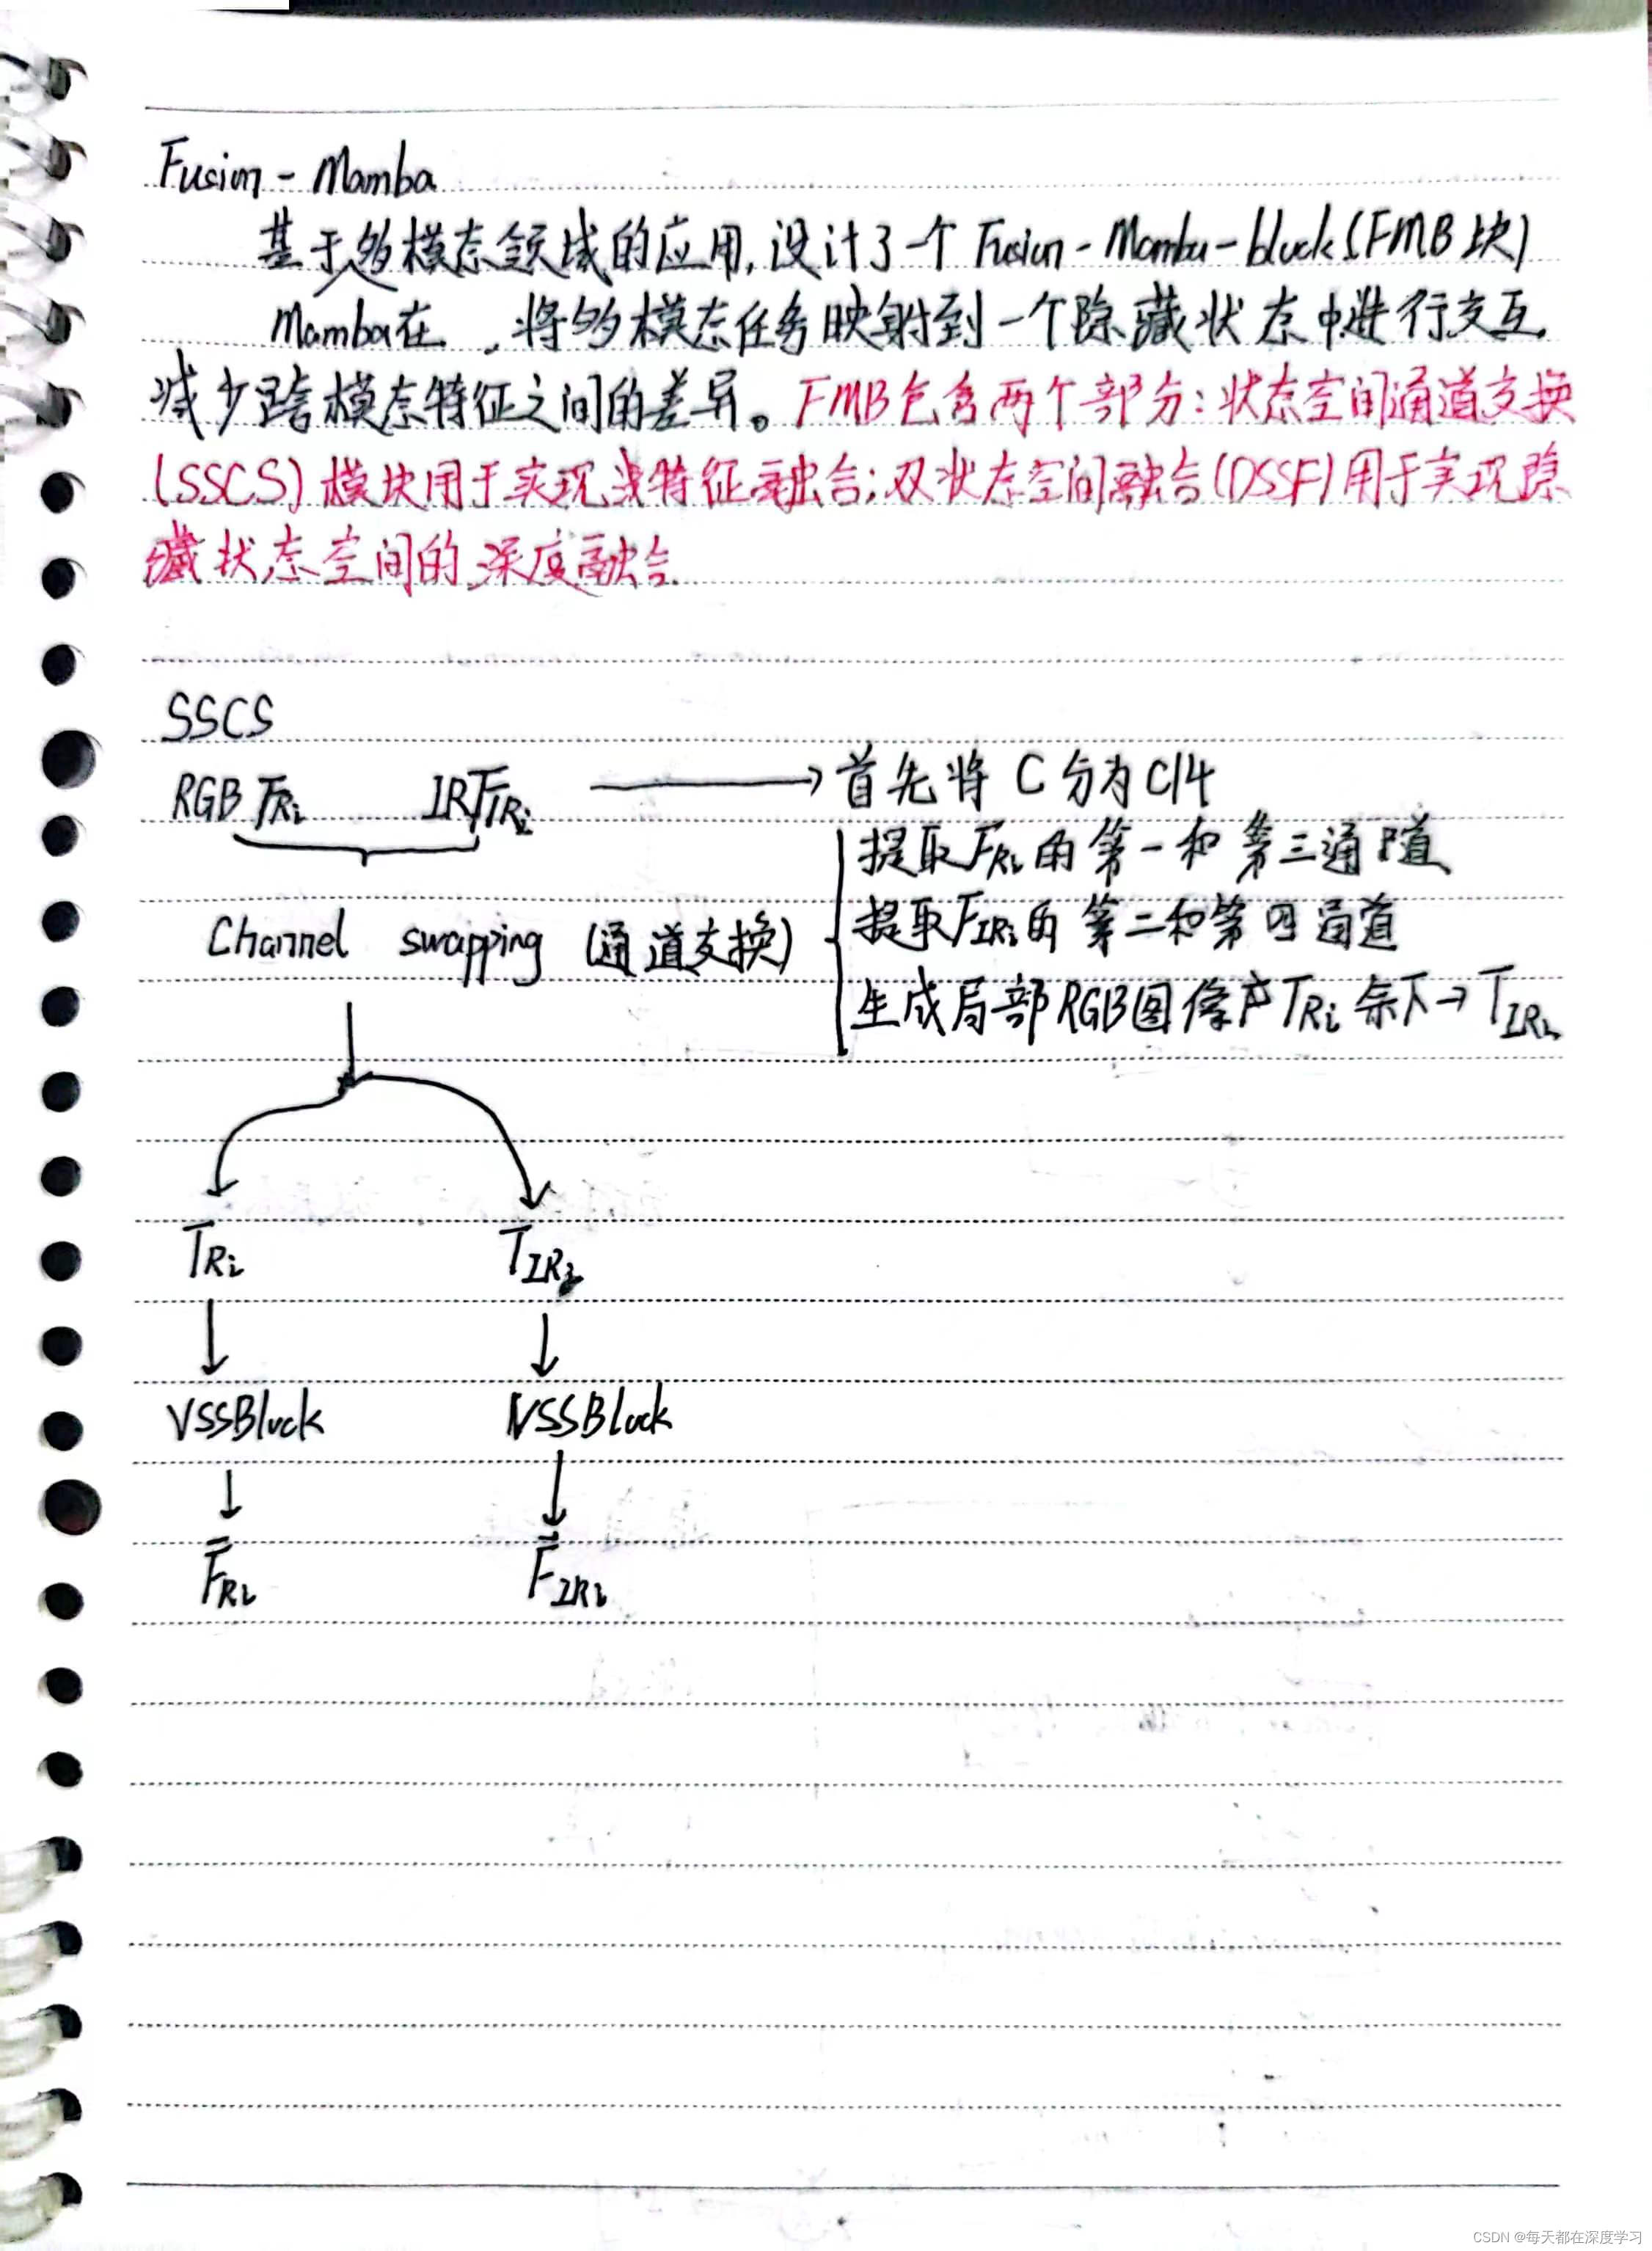 Fusion - Mamba
基于多模态领域的应用,设计了一个 Fusion - Mamba - block(FMB块)
Mamba在 ,将多模态任务映射到一个隐藏状态中进行交互,
减少跨模态特征之间的差异。FMB包含两个部分:状态空间通道交换
(SSCS)模块用于实现浅特征融合;双状态空间融合(DSSF)用于实现隐
藏状态空间的深度融合
SSCS
RGB FRi IR FIRi → 首先将 C 分为 C/4
提取FRi的第一和第三通道
提取FIRi的第二和第四通道
Channel swapping (通道交换)
生成局部RGB图像 TRi 余下→TIRi
TRi TIRi
VSSBlock VSSBlock
F̄Ri F̄IRi
CSDN @每天都在深度学习